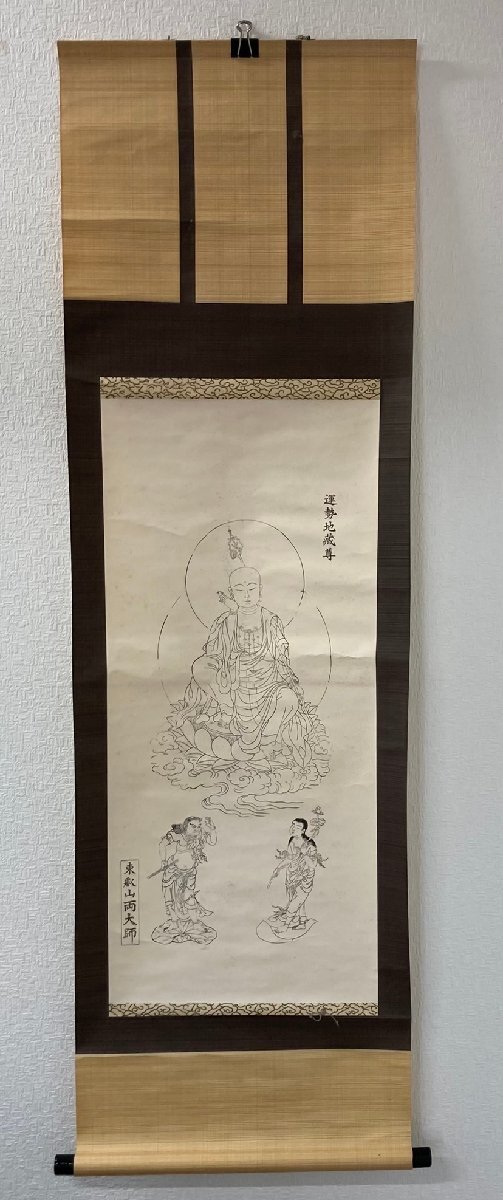 運勢地蔵尊
東叡山両大師